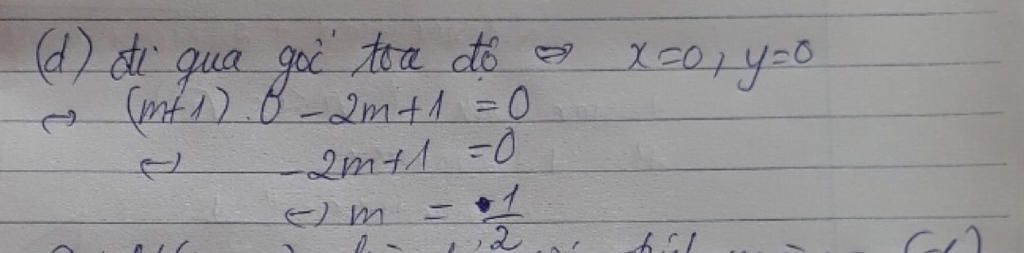 (d) đi qua gốc toạ độ ⇔ x=0, y=0
⇔ (m+1).0 - 2m+1 = 0
⇔ -2m+1 = 0
⇔ m = 1/2